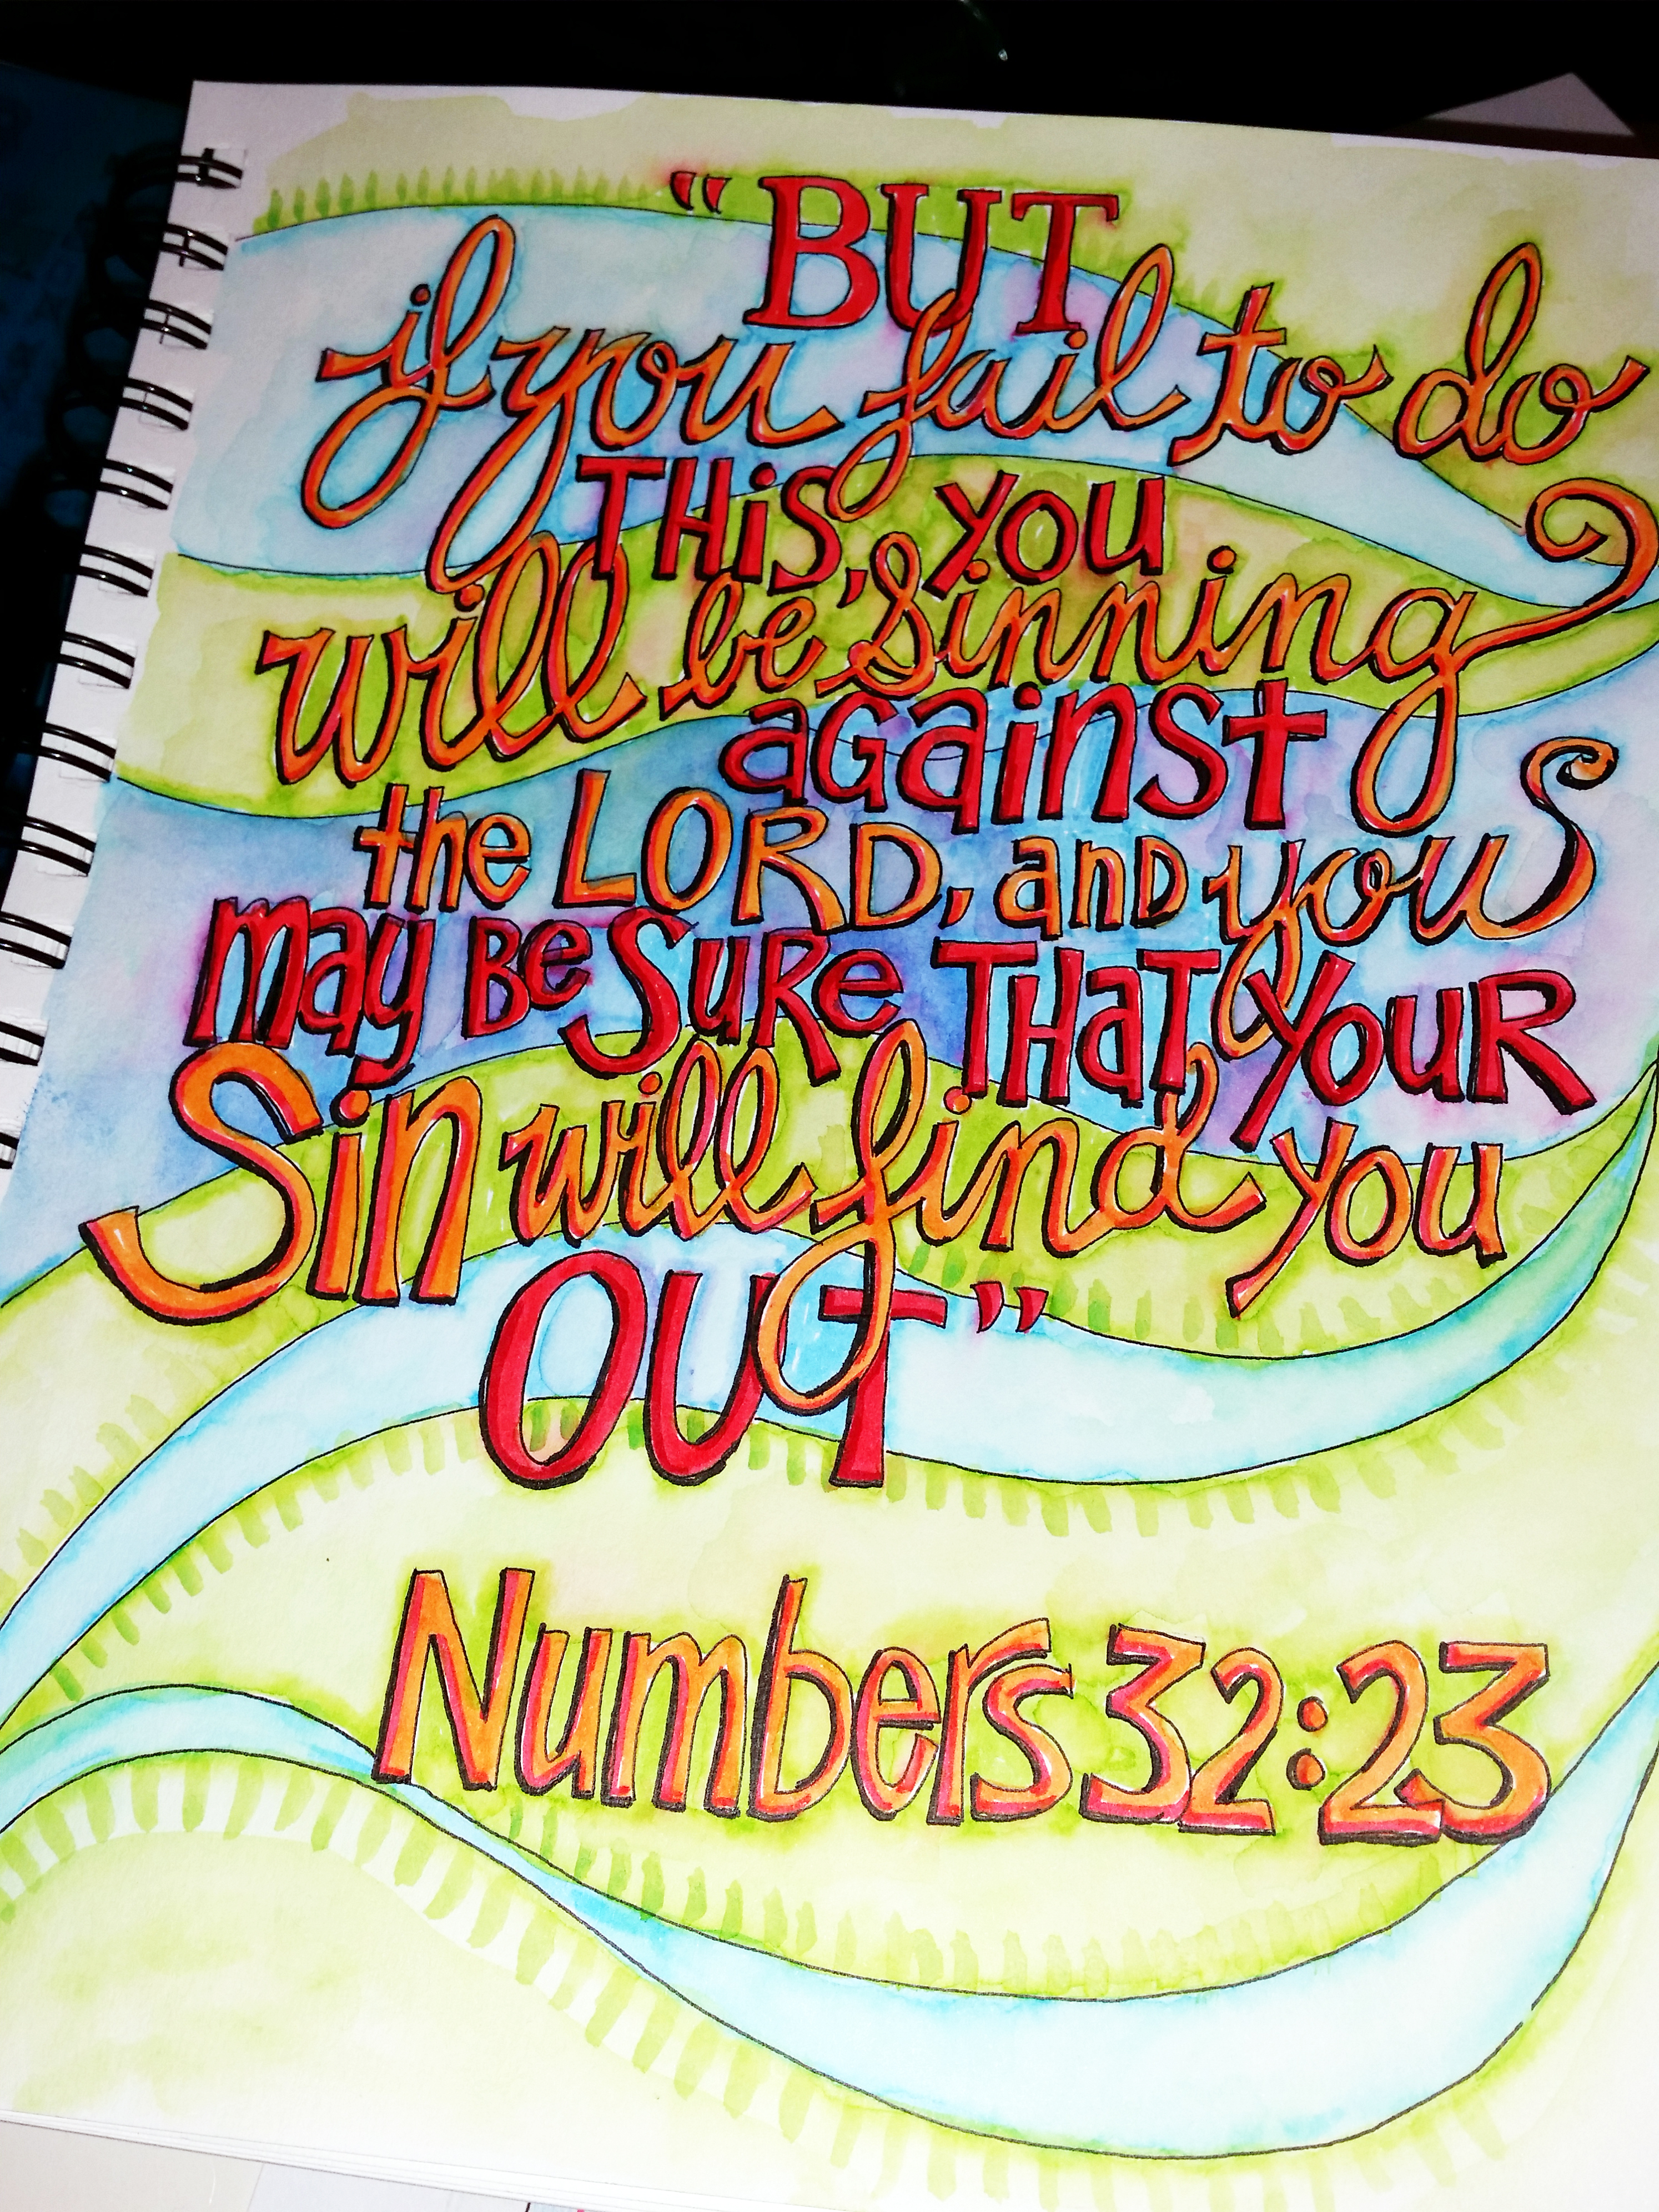 “BUT
if you fail to do
THiS, YOU
will be sinning
against
the LORD, and you
may Be SuRe THaT YOuR
Sin will find you
OUT”
Numbers 32:23